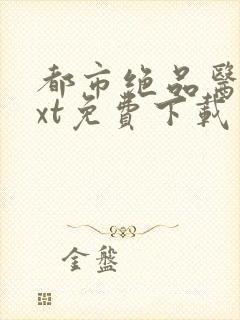 都市绝品医
xt免費下載
金盤